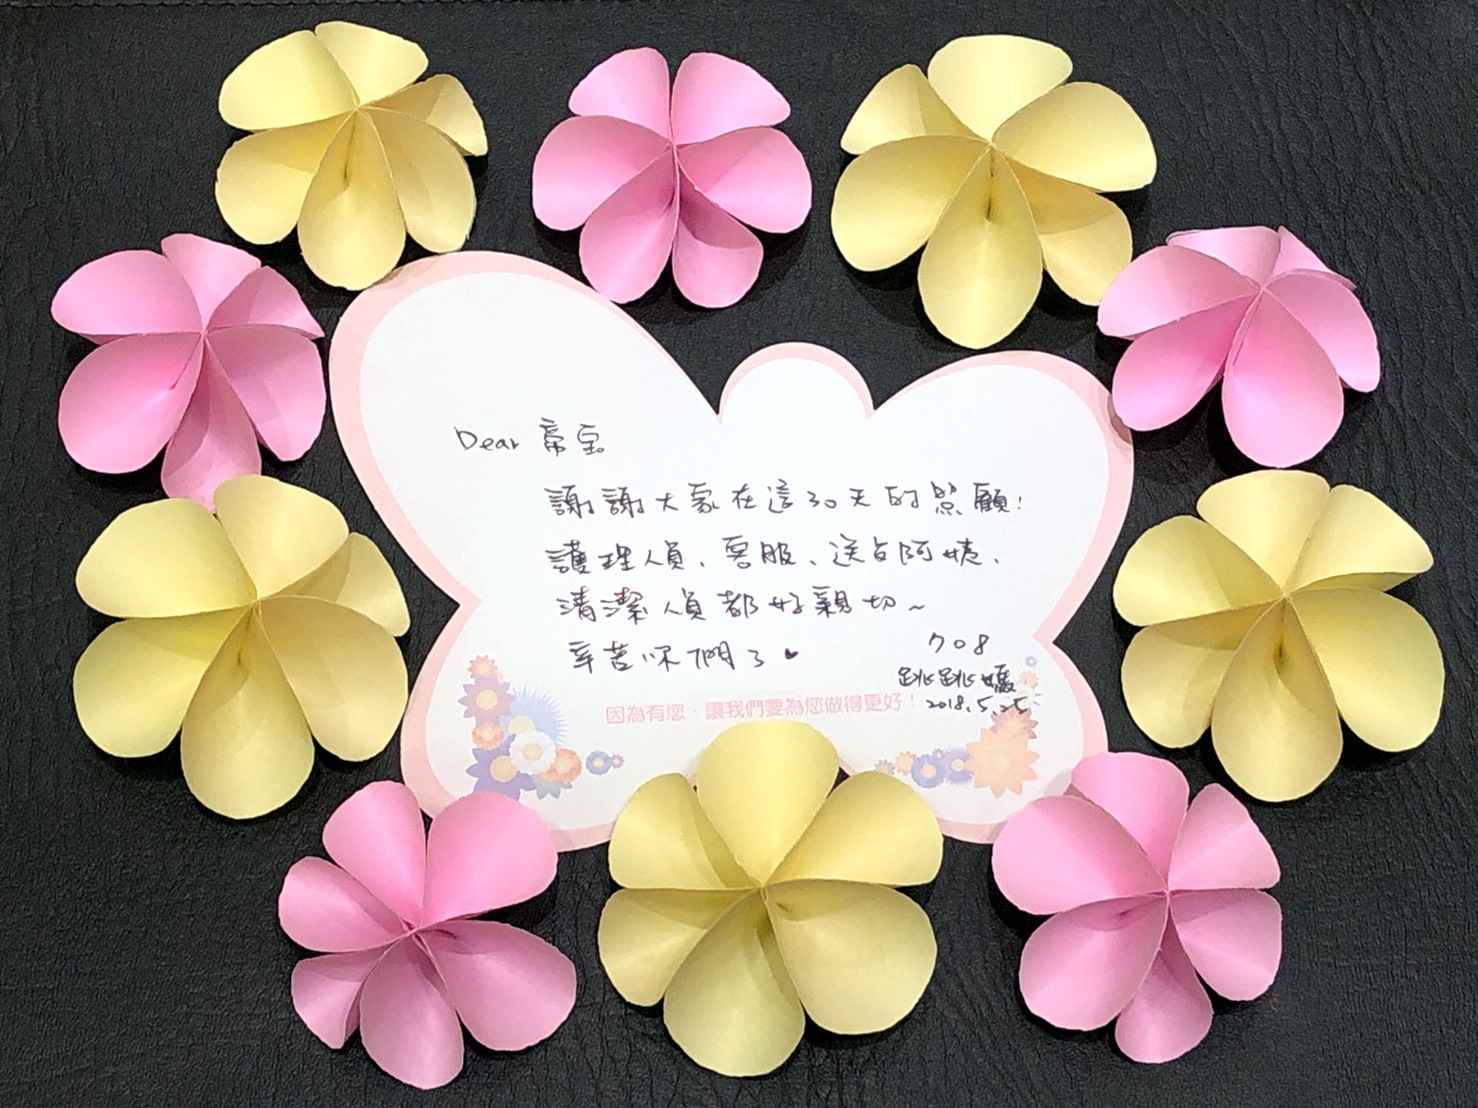 Dear 帝宝
謝謝大家在這30天的照顧!
護理人員、客服、送台阿姨、
清潔人員都好親切~
辛苦你們了♥
708
跳跳媽
2018.5.25
因為有您，讓我們要為您做得更好！